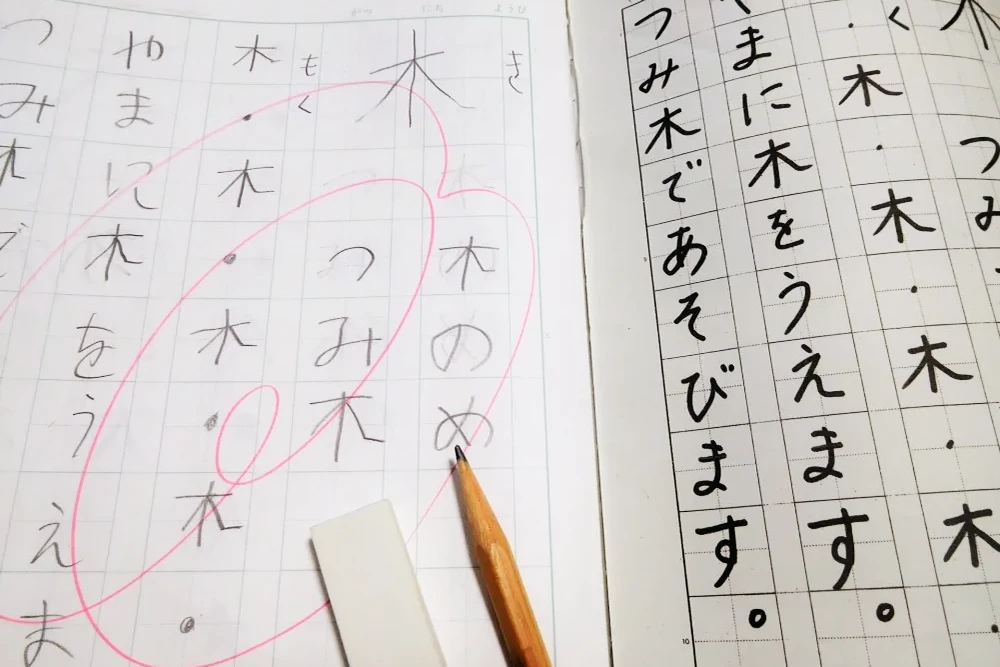 がつ にち ようび
き
木
もく
木のめ
つみ木
木・木・木・木・
やまに木をうえま
つみ木で
木
く
つみ
・木・木・木・木・
やまに木をうえます。
つみ木であそびます。
10